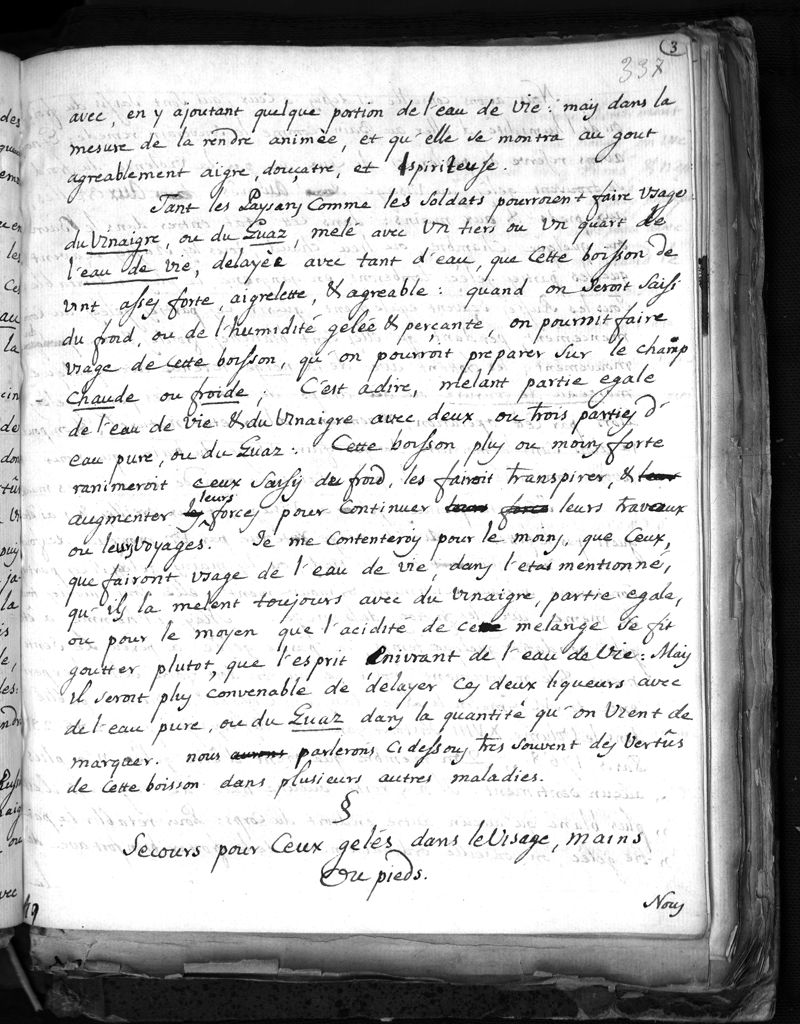 3
337
avec, en y ajoutant quelque portion de l'eau de vie: mais dans la
mesure de la rendre animèe, et qu'elle se montra au gout
agreablement aigre, douçatre, et spiriteuse.
Tant les Paysans Comme les Soldats pourroient faire usage
du Vinaigre, ou du Quaz, melé avec un tiers ou un quart de
l'eau de vie, delayèe avec tant d'eau, que Cette boisson de
vint assez forte, aigrelette, & agreable: quand on seroit Saisi
du froid, ou de l'humidité gelée & perçante, on pourroit faire
usage de Cette boisson, qu'on pourroit preparer sur le champ
Chaude ou froide; C'est adire, melant partie egale
de l'eau de vie & du Vinaigre avec deux ou trois parties d'
eau pure, ou du Quaz: Cette boisson plus ou moins forte
ranimeroit ceux saisis du froid, les fairoit transpirer, & leur
augmenter les leurs forces pour Continuer leurs forces leurs travaux
ou leurs voyages. Je me Contenterois pour le moins, que Ceux,
que fairont usage de l'eau de vie, dans l'etat mentionné,
qu'ils la melent toujours avec du Vinaigre, partie egale,
ou pour le moyen que l'acidité de cette melange se fit
goutter plutot, que l'esprit enivrant de l'eau de Vie: Mais
il seroit plus convenable de delayer ces deux liqueurs avec
de l'eau pure, ou du Quaz dans la quantité qu'on vient de
marquer. nous aurons parlerons Ci dessous tres souvent des Vertûs
de Cette boisson dans plusieurs autres maladies.
§
Secours pour Ceux gelés dans le Visage, mains
Ou pieds.
Nous